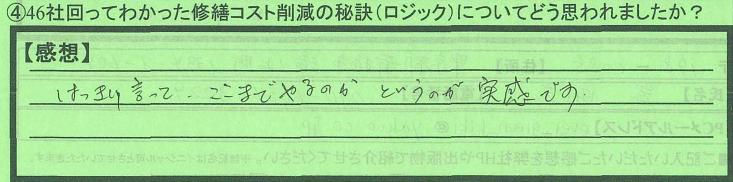 ④46社回ってわかった修繕コスト削減の秘訣(ロジック)についてどう思われましたか?
【感想】
はっきり言って、ここまでやるのか というのが 実感です。